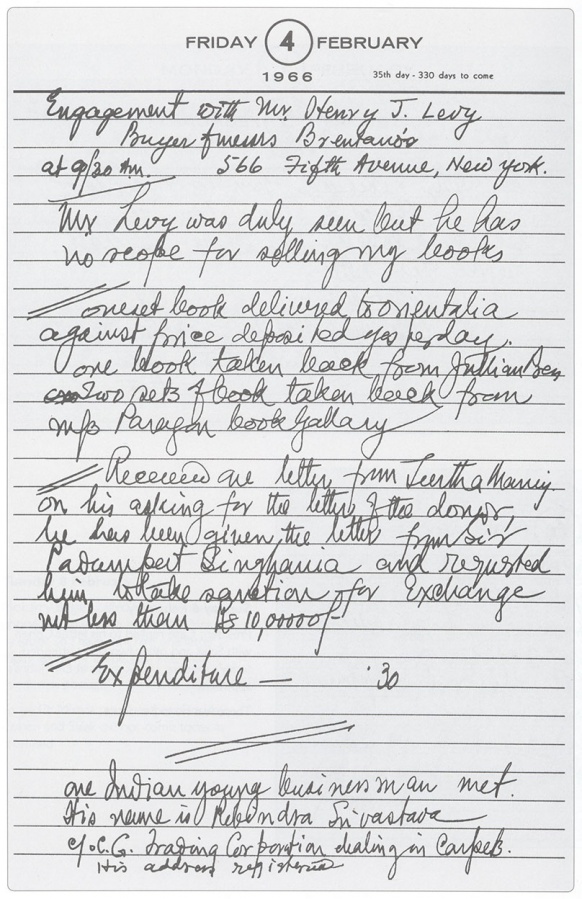 FRIDAY 4 FEBRUARY
1966
35th day - 330 days to come
Engagement with Mr. Henry J. Levy
Buyer of messrs Brentano's
at 9/30 A.M. 566 Fifth Avenue, New York.
Mr Levy was duly seen but he has
no scope for selling my books
one set book delivered to orientalia
against price deposited yesterday.
one book taken back from Jullian Bern
Two sets of book taken back from
m/s Paragon book Gallary
Received one letter from Teertha Maharaj
on his asking for the letter of the donor,
he has been given the letter from Sir
Padampat Singhania and requested
him to take sanction for Exchange
not less than Rs 10,00000/-
Expenditure — .30
one Indian young businessman met.
His name is Rebendra Srivastava
c/o. C.G. Trading Corporation dealing in Carpets.
His address registered